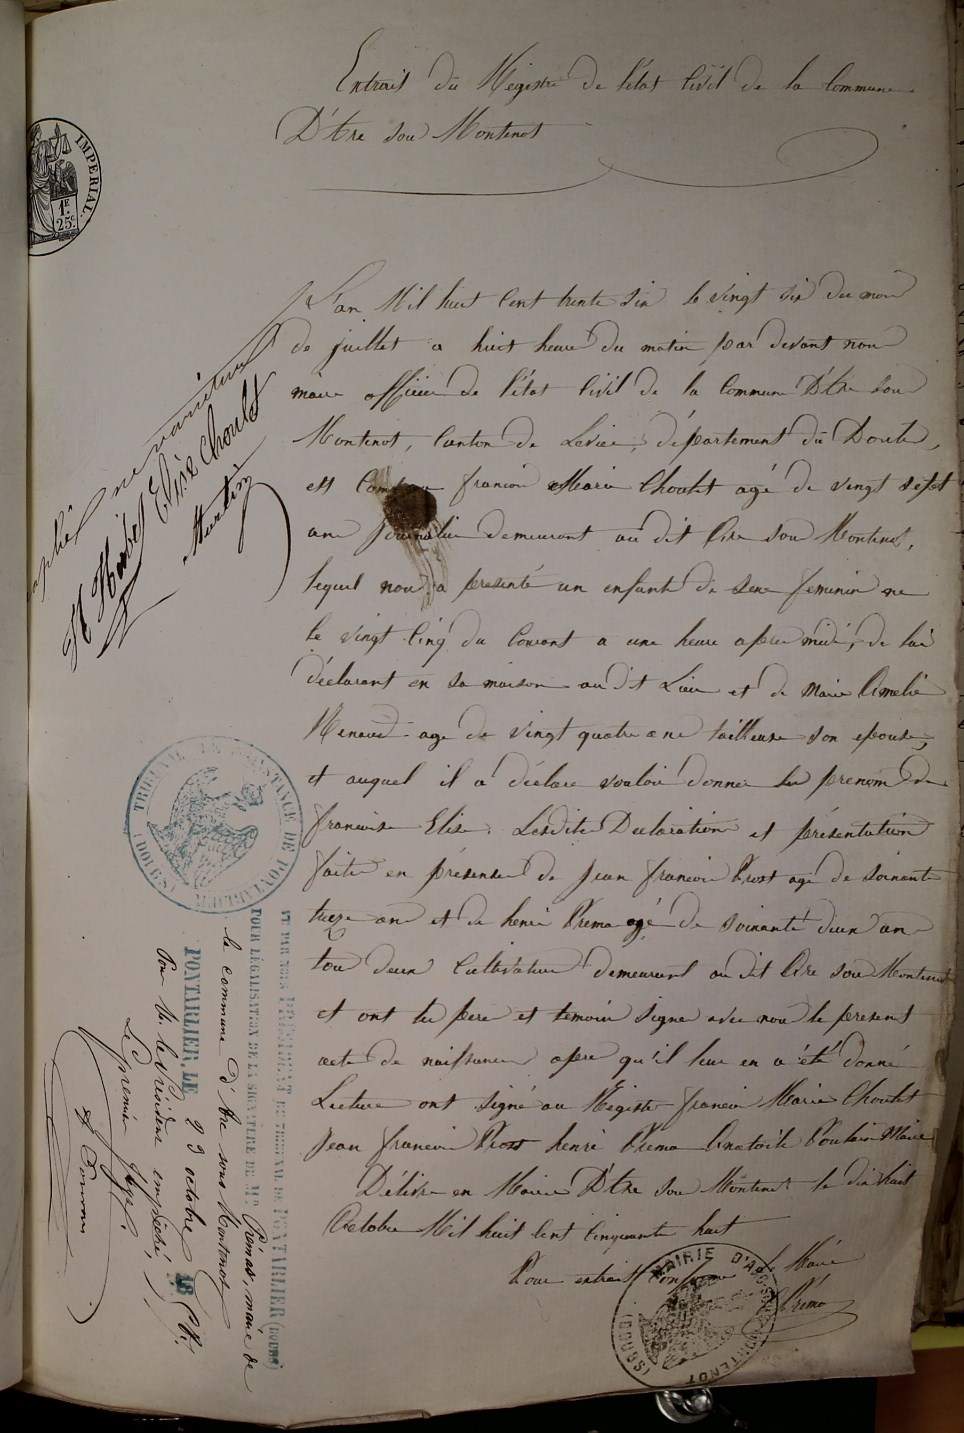 Extrait du Registre de l'état Civil de la Commune
D'Are sou Montenot
IMPERIAL
1F.
25c
L'an Mil huit Cent trente six le vingt six du moi
de juillet a huit heure du matin par devant nou
maire officier de l'état Civil de la Commune D'Are sou
Montenot, Canton de Levier, département du Doubs,
est Comparu francoi Marie Choulet agé de vingt sept
ans Journalier demeurant au dit Are sou Montenot,
lequel nou a presenté un enfant de sexe feminin ne
le vingt Cinq du Courant a une heure apre midi, de lui
déclarant en sa maison au dit Lieu et de Marie Amelie
Renaud age de vingt quatre ans tailleuse son epouse,
et auquel il a déclare vouloir donner les prenom de
francoise Elise. Lesdite Declaration et présentation
faite en présence de Jean francoi Prost agé de soixante
treize an et de henri Prema agé de soixante deux an
tou deux Cultivateur demeurant au dit Are sou Montenot
et ont les pere et temoin signe avec nou le present
acte de naissance apre qu'il leur en a été donné
Lecture ont signé au Registe francoi Marie Choulet
Jean francoi Prost henri Prema Anatoile Poulain Maire
Délivré en Mairie D'Are sou Montenot le dix huit
Octobre Mil huit Cent Cinquante huit
Pour extrait Conforme Le Maire
Préma
MAIRIE D'ARC-SOUS-MONTENOT (DOUBS)
ne varietur
Elise Choulet
Martin
TRIBUNAL DE 1re INSTANCE DE PONTARLIER (DOUBS)
VU PAR NOUS PRESIDENT DU TRIBUNAL DE PONTARLIER (DOUBS)
POUR LÉGALISATION DE LA SIGNATURE DE Mr Prémas, maire de
la commune d'Arc sous Montenot
PONTARLIER, LE 23 octobre 1858.
Pour M. le Président empêché,
Le premier Juge.